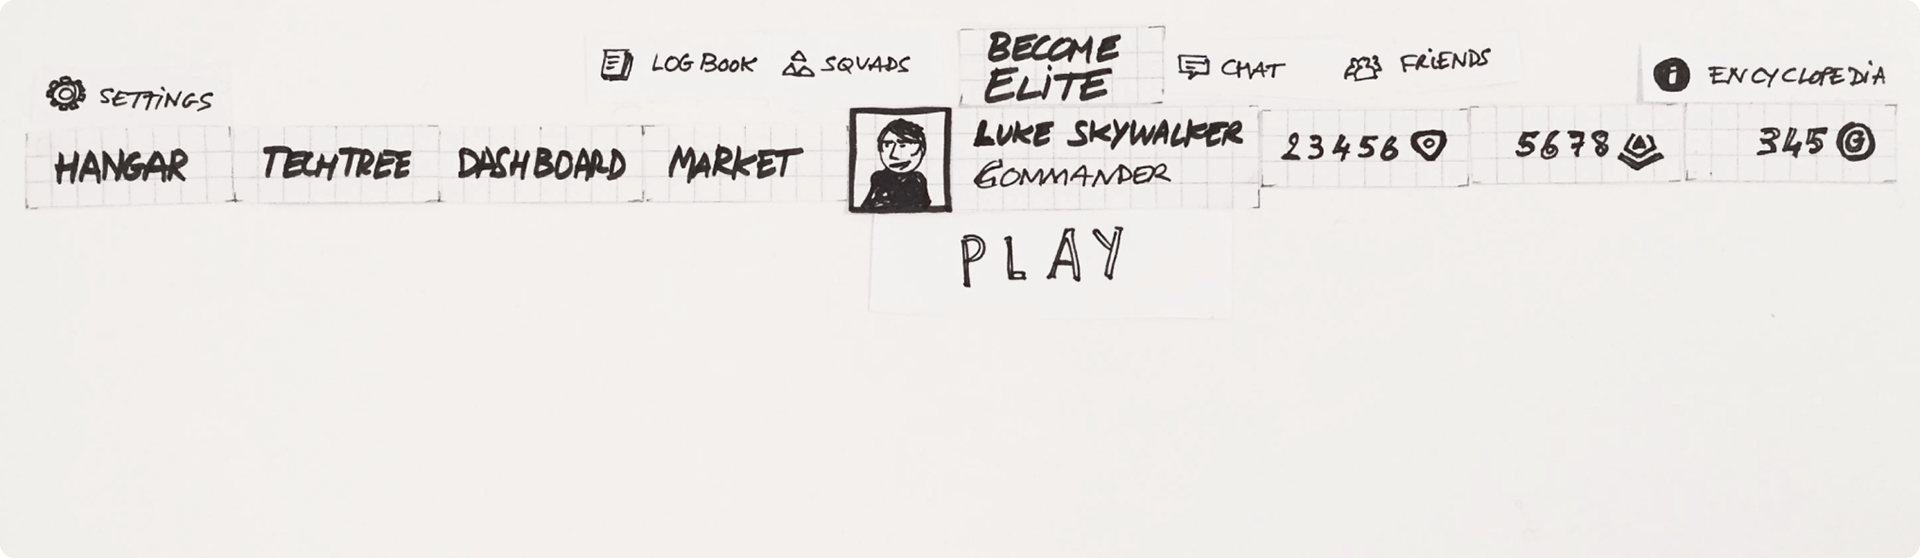 SETTINGS
LOG BOOK
SQUADS
BECOME
ELiTE
CHAT
FRiENDS
i
ENCYCLOPEDiA
HANGAR
TECHTREE
DASHBOARD
MARKET
LUKE SKYWALKER
COMMANDER
23456
5678
345 G
PLAY